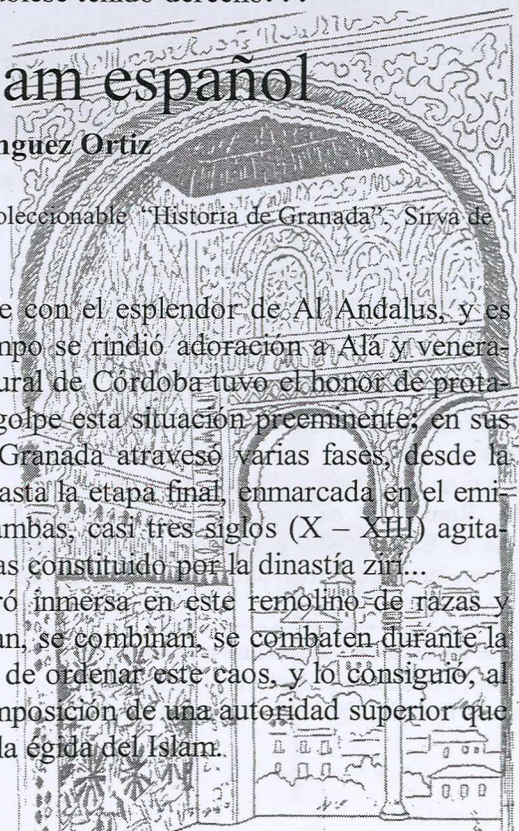 tenido derecho. . .
am español
nguez Ortiz
oleccionable “Historia de Granada”. Sirva de
e con el esplendor de Al Andalus, y es
npo se rindió adoración a Alá y venera-
ural de Córdoba tuvo el honor de prota-
golpe esta situación preeminente; en sus
Granada atravesó varias fases, desde la
asta la etapa final, enmarcada en el emi-
ambas, casi tres siglos (X – XIII) agita-
as constituido por la dinastía zirí...
ró inmersa en este remolino de razas y
an, se combinan, se combaten durante la
de ordenar este caos, y lo consiguió, al
mposición de una autoridad superior que
la égida del Islam.